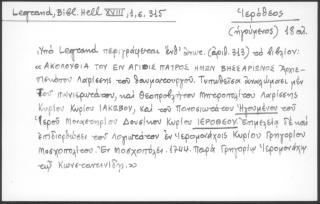 Legrand, Bibl. Hell XVIII, 1, σ. 315
Ἱερόθεος
(ἡγούμενος) 18 αἰ.
Ὑπὸ Legrand περιγράφεται ἐνθ' ἀνωτ. (ἀριθ. 313) τὸ βιβλίον:
« ΑΚΟΛΟΥΘΙΑ ΤΟΥ ΕΝ ΑΓΙΟΙΣ ΠΑΤΡΟΣ ΗΜΩΝ ΒΗΣΣΑΡΙΩΝΟΣ Ἀρχιε-
πισκόπου Λαρίσσης τοῦ θαυματουργοῦ. Τυπωθεῖσα ἀναλώμασι μὲν
τοῦ πανιερωτάτου, καὶ Θεοπροβλήτου Μητροπολίτου Λαρίσσης
Κυρίου Κυρίου ΙΑΚΩΒΟΥ, καὶ τοῦ Πανοσιωτάτου Ἡγουμένου τοῦ
Ἱεροῦ Μοναστηρίου Δουσίκου Κυρίου ΙΕΡΟΘΕΟΥ. Ἐπιμελείᾳ δὲ καὶ
ἐπιδιορθώσει τοῦ λογιωτάτου ἐν Ἱερομονάχοις Κυρίου Γρηγορίου
Μοσχοπολίτου. Ἐν Μοσχοπόλει. 1744. Παρὰ Γρηγορίῳ Ἱερομονάχῳ
τῷ Κωνσταντινίδῃ.»